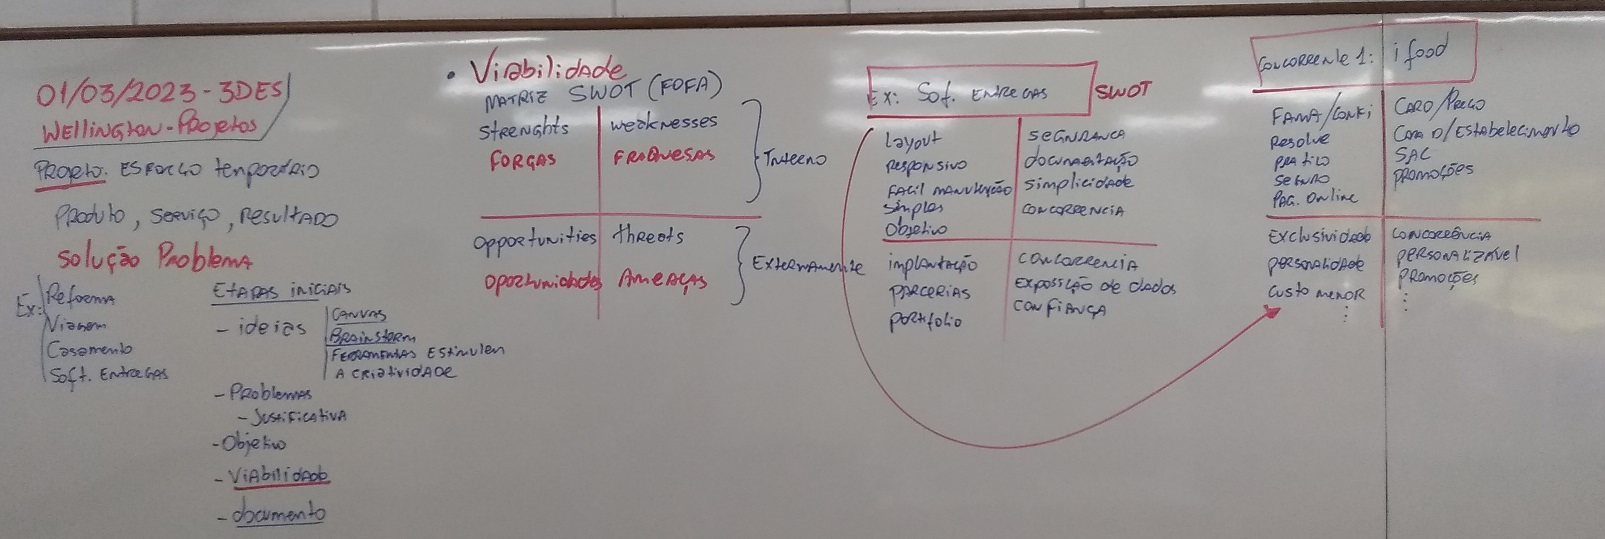 01/03/2023 - 3DES
Wellington - Projetos
Projeto. Esforço temporário
Produto, Serviço, Resultado
Solução Problema
Ex: Reforma
Viagem
Casamento
Soft. Entregas
Etapas iniciais
- ideias
Canvas
Brainstorm
Ferramentas estimulem
a criatividade
- Problemas
- Justificativa
- Objetivo
- Viabilidade
- documento
• Viabilidade
Matriz SWOT (FOFA)
Strenghts
Forças
weaknesses
Fraquesas
Interno
Opportunities
Oportunidades
threats
Ameaças
Externamente
Ex: Sof. Entregas
SWOT
Layout
Responsivo
Facil manutenção
Simples
Objetivo
Segurança
documentação
Simplicidade
Concorrencia
implantação
Parcerias
Portifolio
Concorrencia
Exposição de dados
Confiança
Concorrente 1: ifood
Fama/Confi
Resolve
Pratico
Seguro
Pag. Online
Caro/Preço
Cara o/Estabelecimento
SAC
Promoções
Exclusividade
Personalidade
Custo menor
⋮
Concorrência
Personalizável
Promoções
⋮